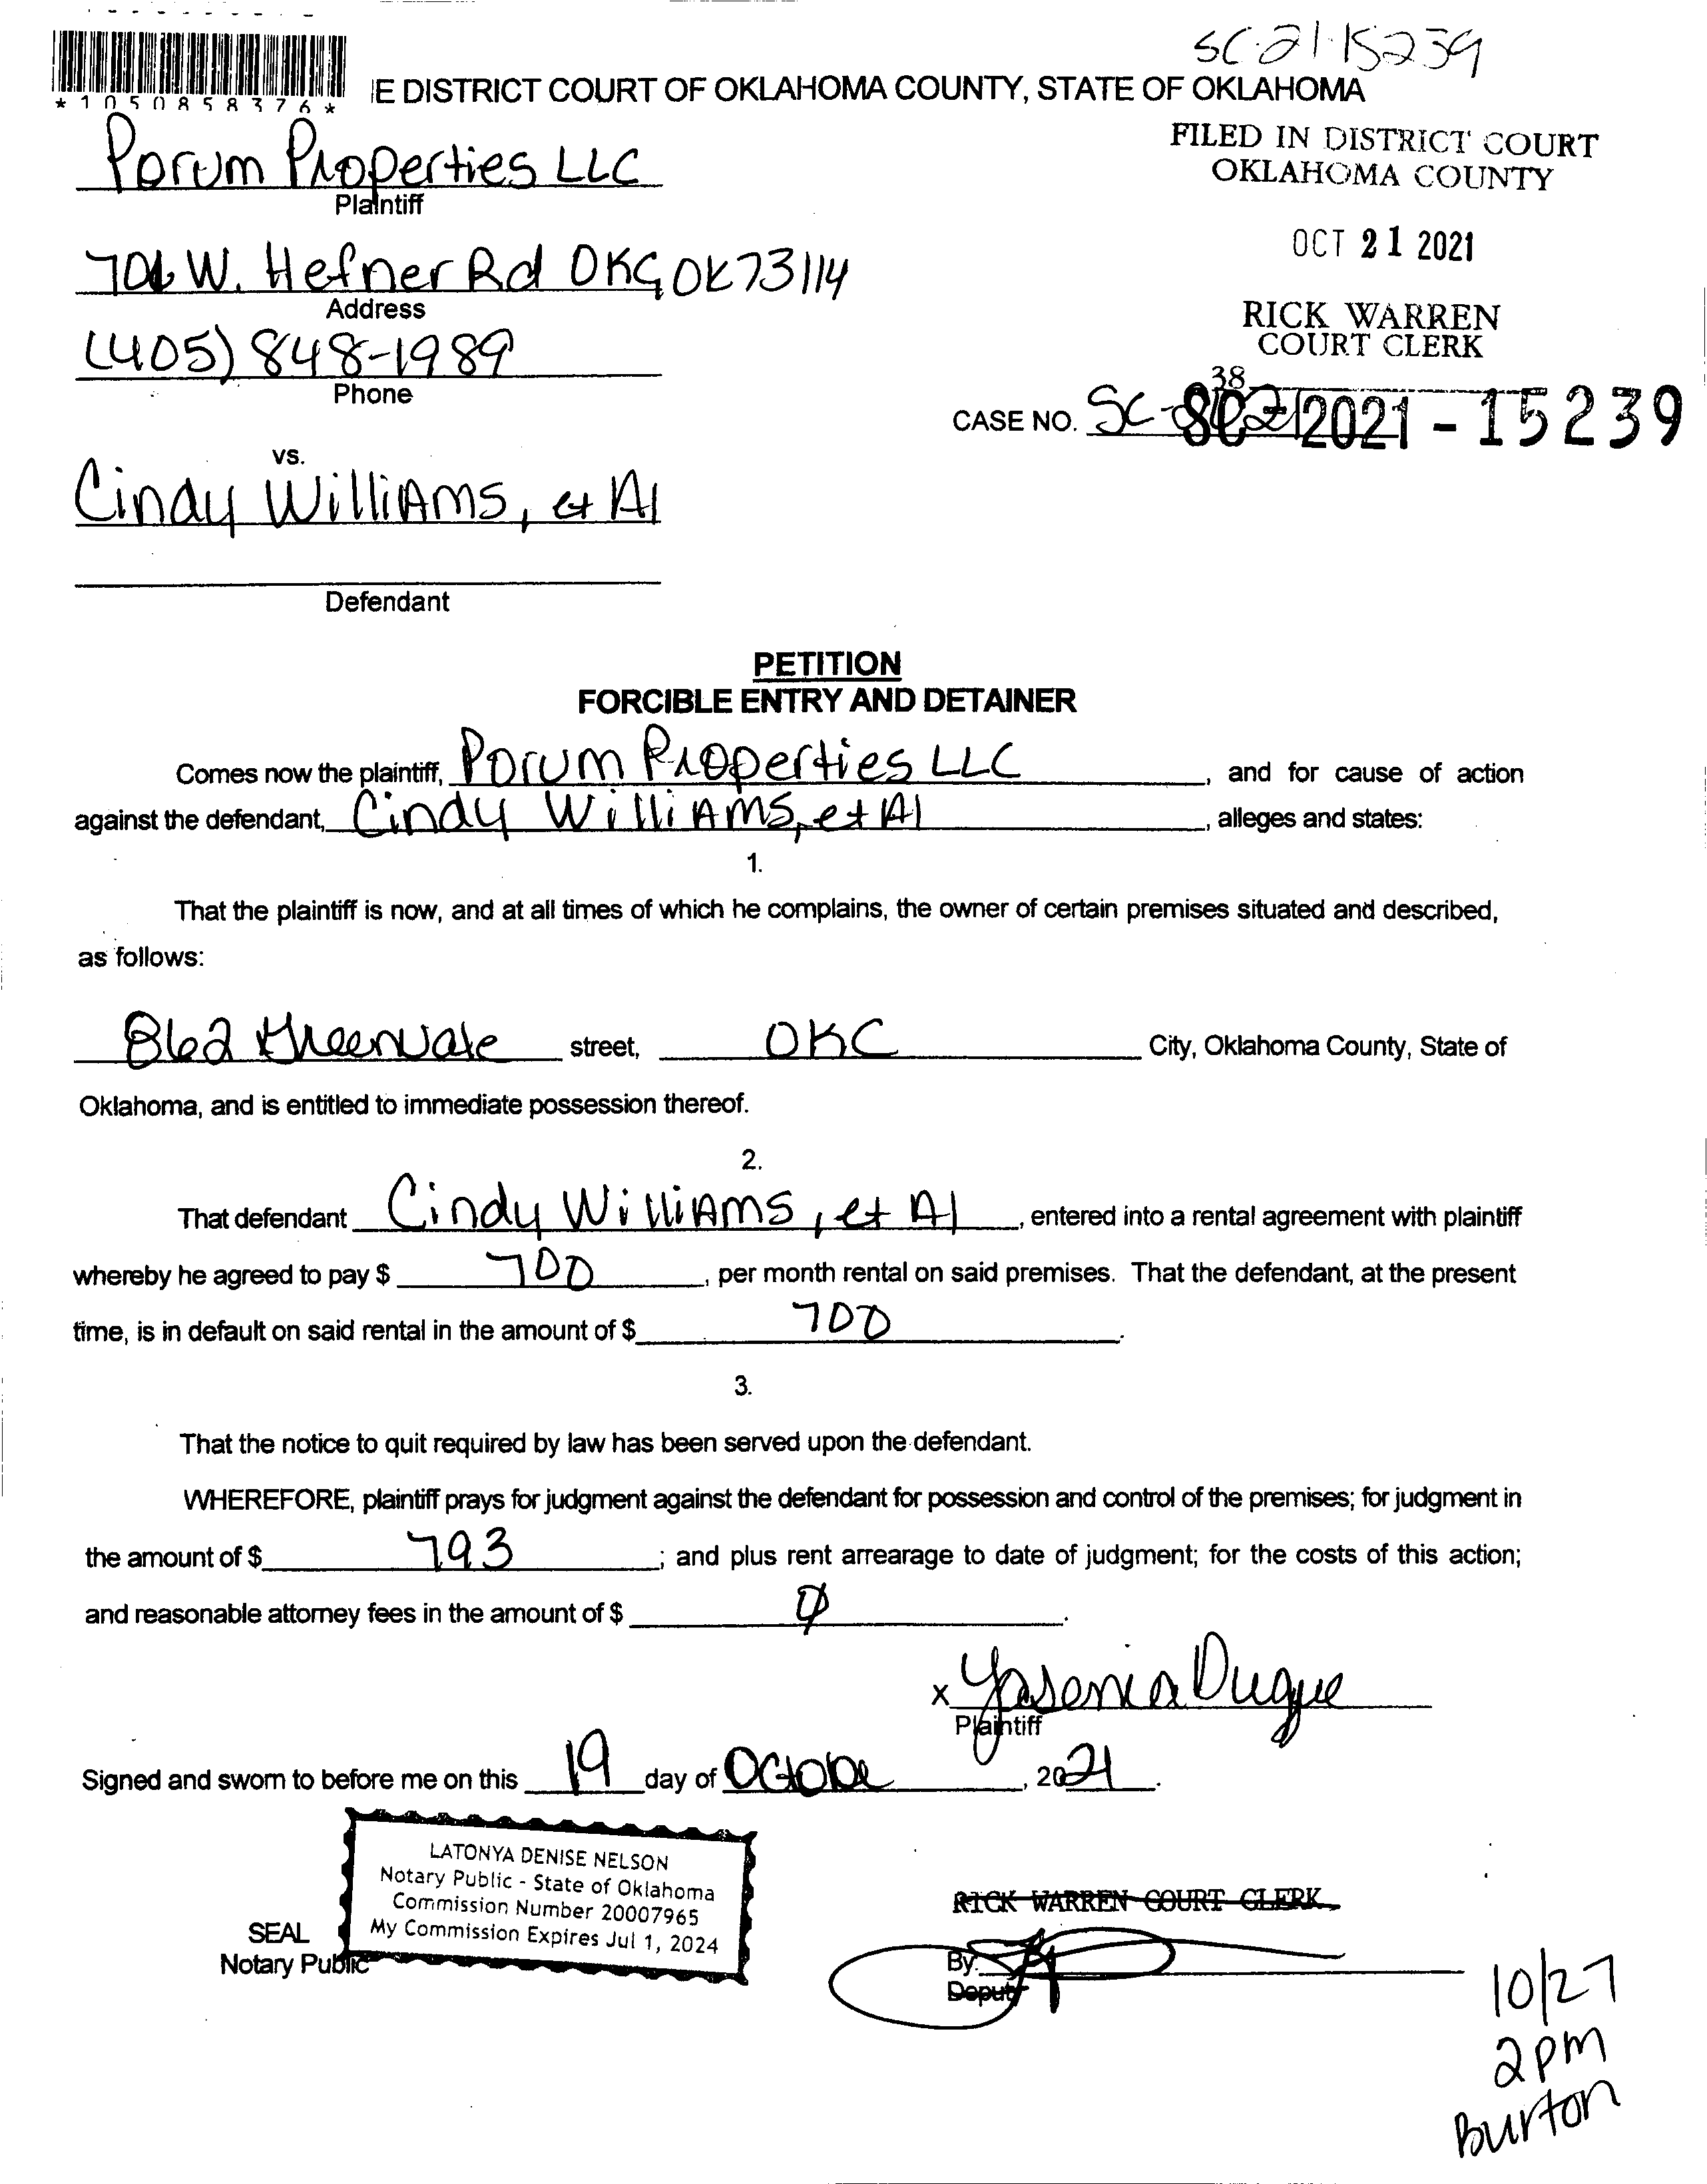 SC-21-15239
*1050858376*
IE DISTRICT COURT OF OKLAHOMA COUNTY, STATE OF OKLAHOMA
Porum Properties LLC
Plaintiff
FILED IN DISTRICT COURT
OKLAHOMA COUNTY
W. Hefner Rd OKC, OK 73114
Address
OCT 21 2021
(405) 848-1989
Phone
RICK WARREN
COURT CLERK
38
CASE NO. SC-2021-15239
vs.
Cindy Williams, et Al
Defendant
PETITION
FORCIBLE ENTRY AND DETAINER
Comes now the plaintiff, Porum Properties LLC, and for cause of action
against the defendant, Cindy Williams, et Al, alleges and states:
1.
That the plaintiff is now, and at all times of which he complains, the owner of certain premises situated and described,
as follows:
862 Greenvale street, OKC City, Oklahoma County, State of
Oklahoma, and is entitled to immediate possession thereof.
2.
That defendant Cindy Williams, et Al, entered into a rental agreement with plaintiff
whereby he agreed to pay $ 700, per month rental on said premises. That the defendant, at the present
time, is in default on said rental in the amount of $ 700.
3.
That the notice to quit required by law has been served upon the defendant.
WHEREFORE, plaintiff prays for judgment against the defendant for possession and control of the premises; for judgment in
the amount of $ 793; and plus rent arrearage to date of judgment; for the costs of this action;
and reasonable attorney fees in the amount of $ 0.
x Yasenia Duque
Plaintiff
Signed and sworn to before me on this 19 day of October, 2021.
LATONYA DENISE NELSON
Notary Public - State of Oklahoma
Commission Number 20007965
My Commission Expires Jul 1, 2024
SEAL
Notary Public
RICK WARREN COURT CLERK
By:
Deputy
10/27
2pm
Burton